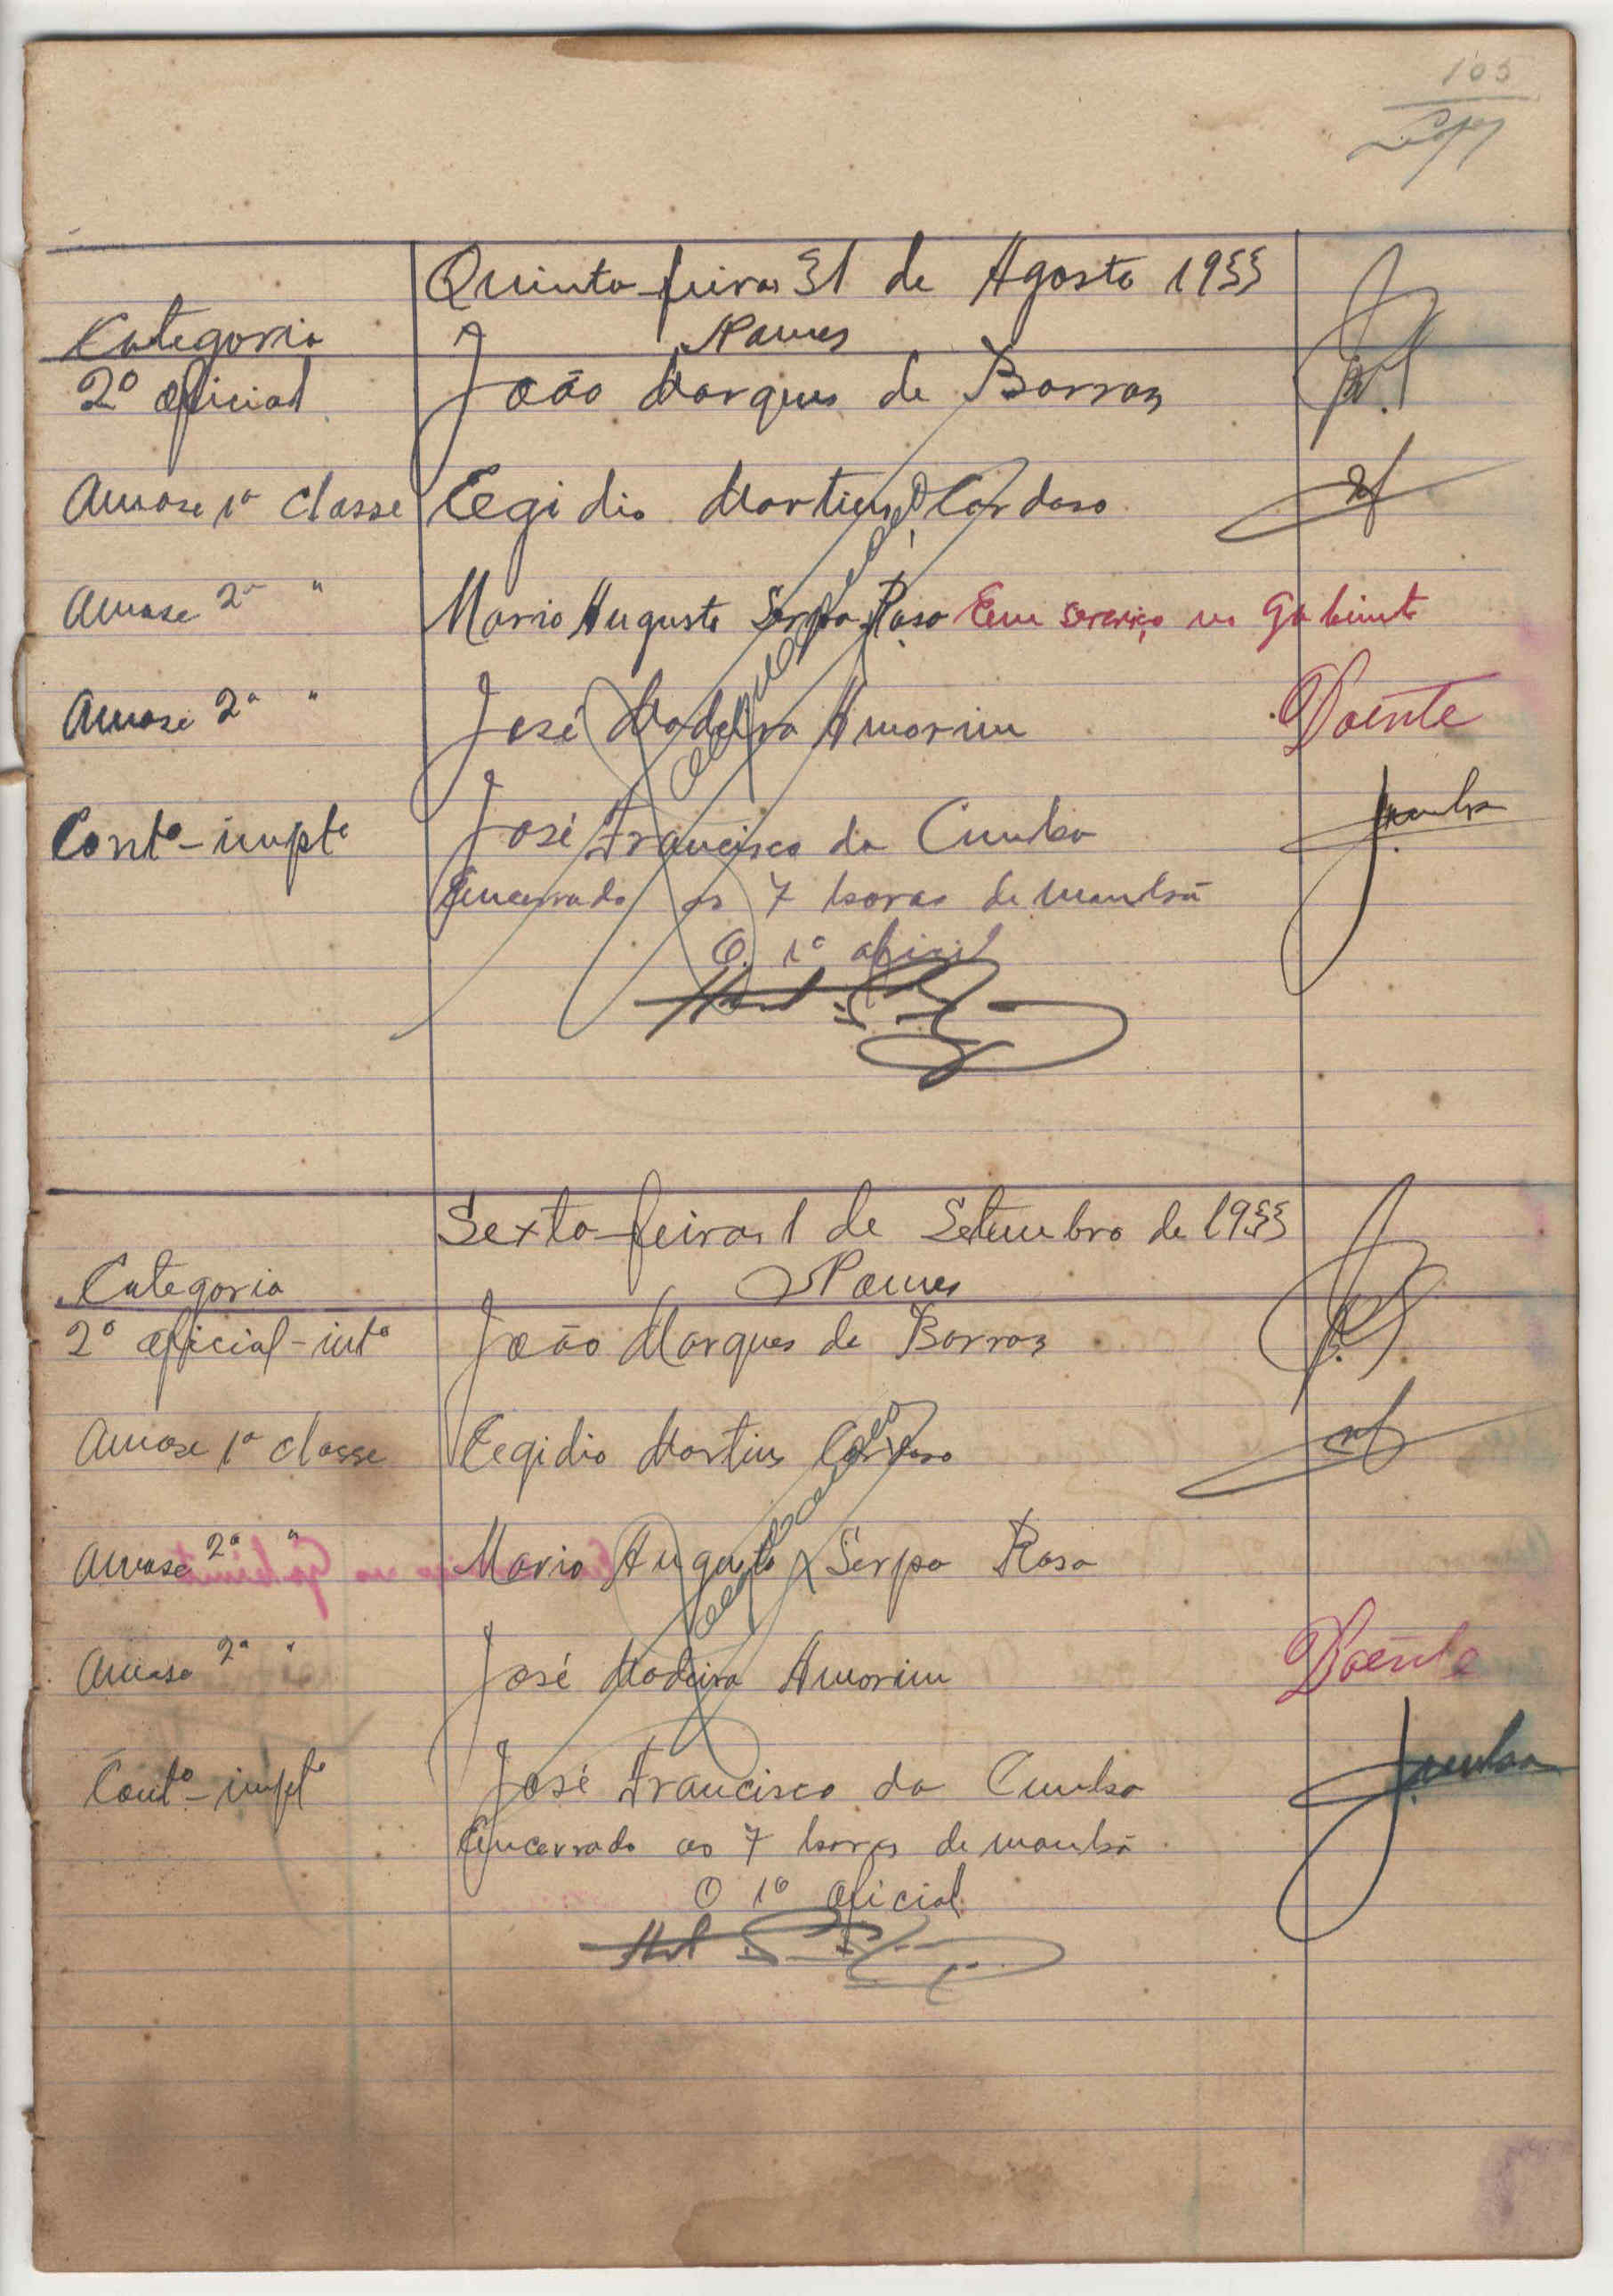 105
Quinta-feira 31 de Agosto 1933
Categoria Nomes
2º oficial João Marques de Barros
Amase 1ª classe Egidio Martins Cardoso
Amase 2ª " Mario Augusto Serpa Rosa Em serviço no Gabinete
Amase 2ª " José Madeira Amorim Doente
Contº-imptº José Francisco da Cunha JCunha
Encerrado as 7 horas da manhã
O 1º oficial
Sexta-feira 1 de Setembro de 1933
Categoria Nomes
2º oficial-intº João Marques de Barros
Amase 1ª classe Egidio Martins Cardoso
Amase 2ª " Mario Augusto Serpa Rosa
Amase 2ª " José Madeira Amorim Doente
Contº-imptº José Francisco da Cunha JCunha
Encerrado as 7 horas da manhã
O 1º oficial